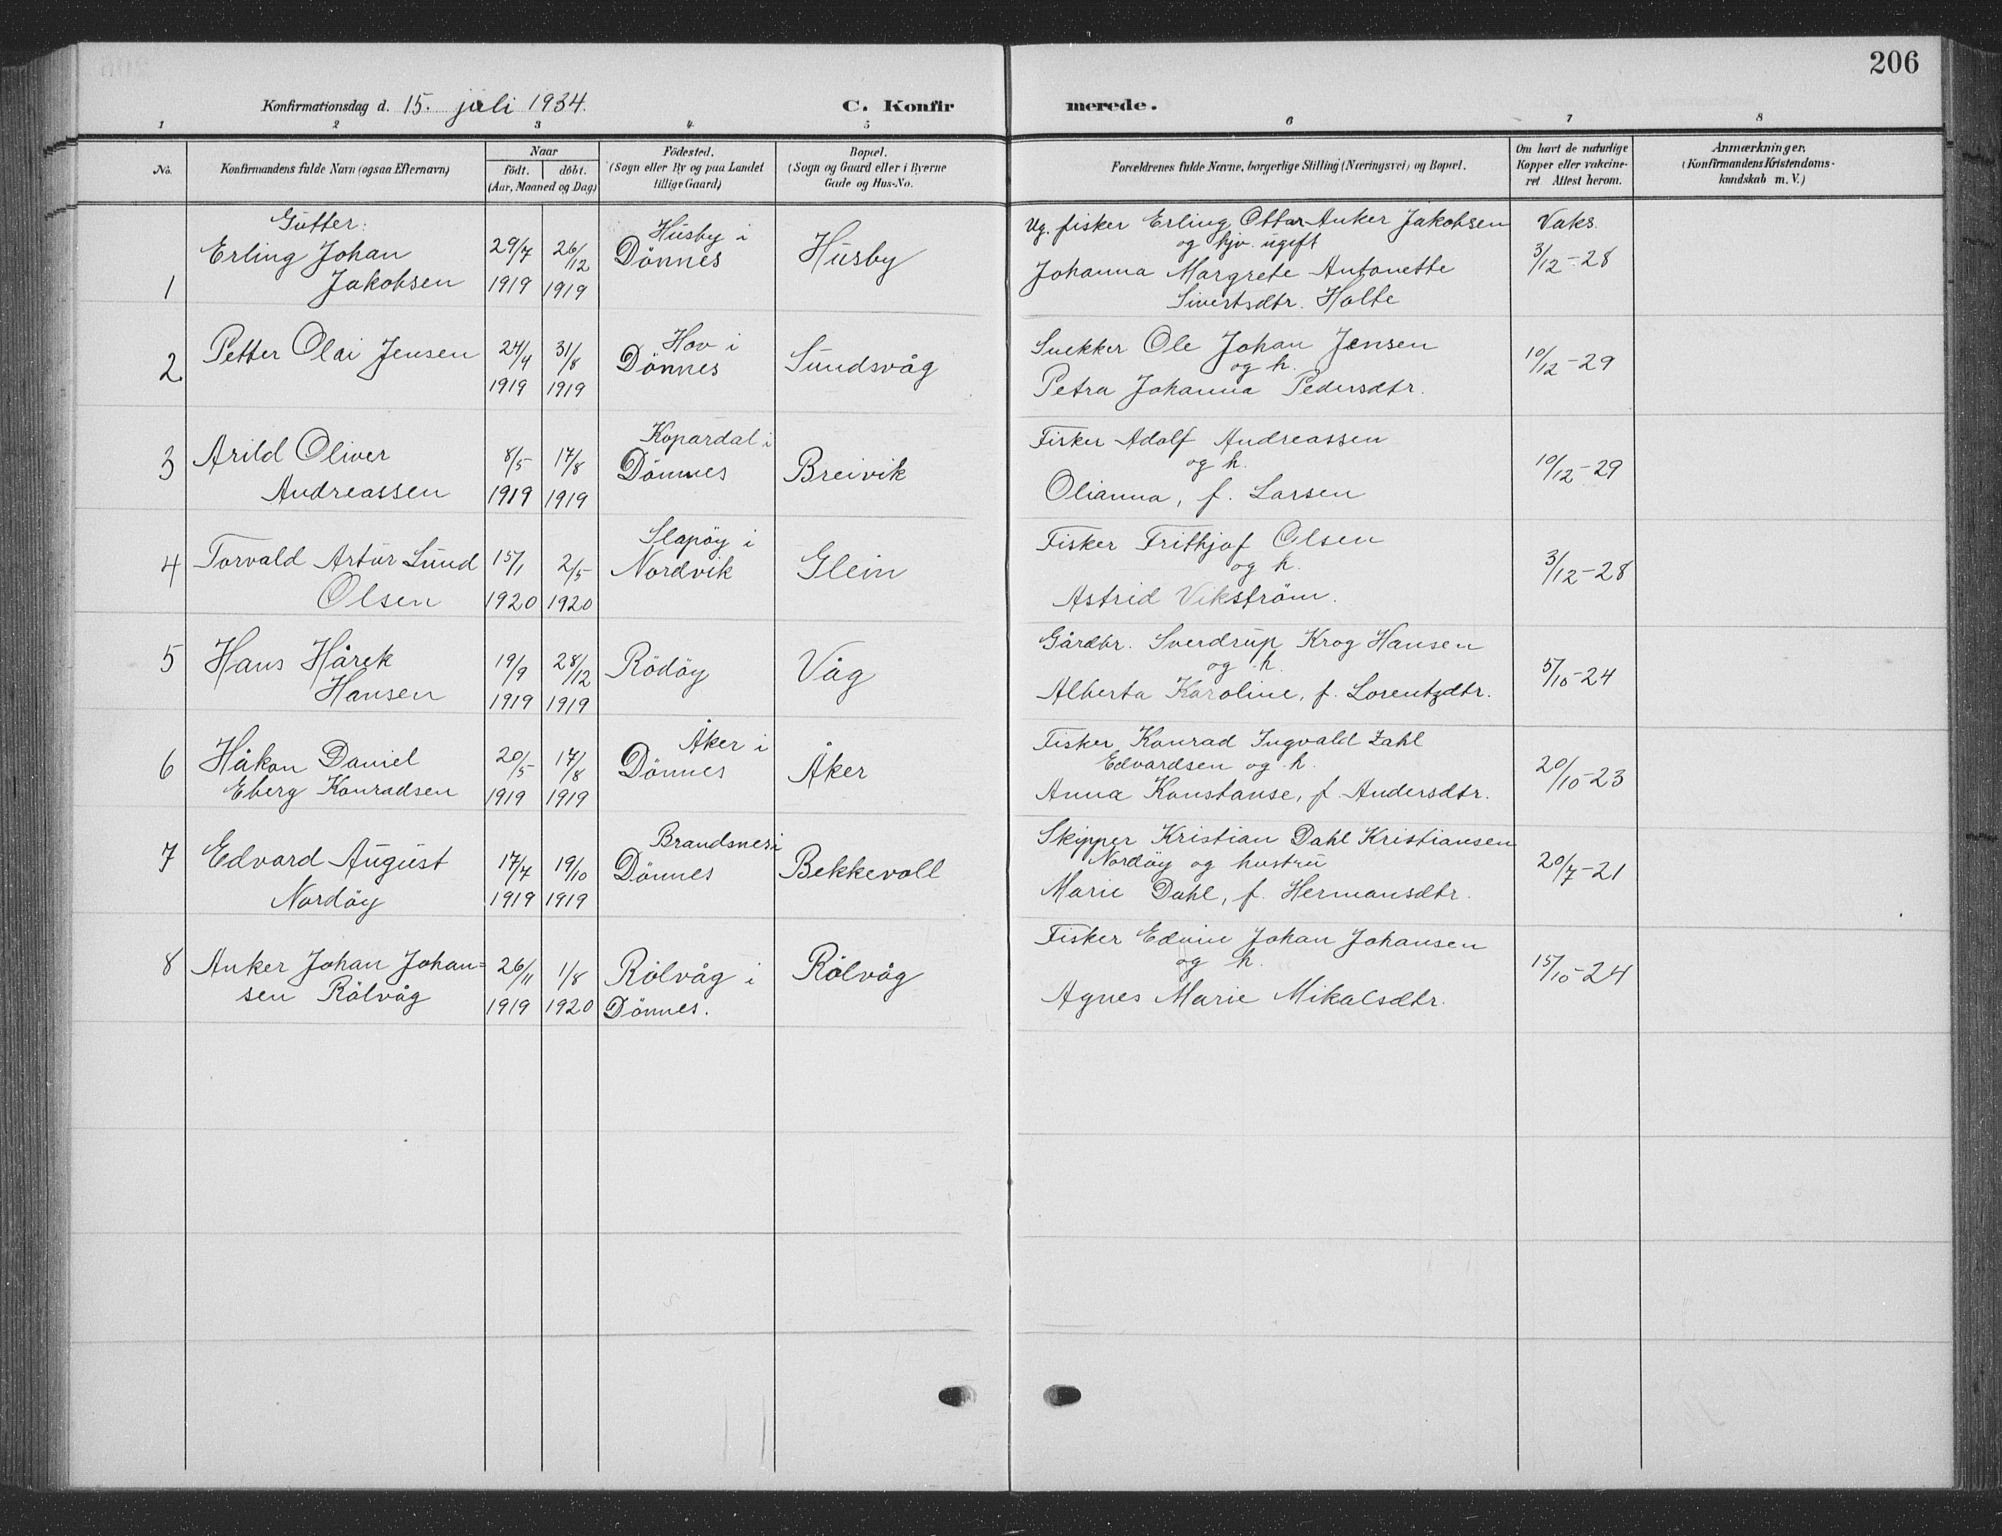 206
Konfirmationsdag d. 15. juli 1934.
C. Konfir
merede.
1 2 3 4. 5 6 7 8
No. Konfirmandens fulde Navn (ogsaa Efternavn)
Naar
födt. döbt.
(Aar, Maaned og Dag)
Födested.
(Sogn eller By og paa Landet
tillige Gaard)
Bopæl.
(Sogn og Gaard eller i Byerne
Gade og Hus-No.
Forældrenes fulde Navne, borgerlige Stilling (Næringsvei) og Bopæl.
Om havt de naturlige
Kopper eller vakcine-
ret Attest herom.
Anmærkninger,
(Konfirmandens Kristendoms-
kundskab m. V.)
Gutter:
1 Erling Johan
Jakobsen
29/7 1919
26/12 1919
Husby i
Dönnes
Husby
Ug. fisker Erling Ottar Anker Jakobsen
og hjv. ugift
Johanna Margrete Antonette
Sivertsdtr. Holte
Vaks.
3/12-28
2 Petter Olai Jensen
24/4 1919
31/8 1919
Hov i
Dönnes
Sundsvåg
Snekker Ole Johan Jensen
og h.
Petra Johanna Pedersdtr.
10/12-29
3 Arild Oliver
Andreassen
8/5 1919
17/8 1919
Kopardal i
Dönnes
Breivik
Fisker Adolf Andreassen
og h.
Olianna, f. Larsen
10/12-29
4 Torvald Artur Lund
Olsen
15/1 1920
2/5 1920
Slapöy i
Nordvik
Glein
Fisker Frithjof Olsen
og h.
Astrid Vikström.
3/12-28
5 Hans Hårek
Hansen
19/9 1919
28/12 1919
Rödöy
Våg
Gårdbr. Sverdrup Krog Hansen
og h.
Alberta Karoline, f. Lorentzdtr.
5/10-24
6 Håkon Daniel
Eberg Konradsen
20/5 1919
17/8 1919
Åker i
Dönnes
Åker
Fisker Konrad Ingvald Zahl
Edvardsen og h.
Anna Konstanse, f. Andersdtr.
20/10-23
7 Edvard August
Nordöy
17/7 1919
19/10 1919
Brandsnes i
Dönnes
Bekkevoll
Skipper Kristian Dahl Kristiansen
Nordöy og hustru
Marie Dahl, f. Hermansdtr.
20/7-21
8 Anker Johan Johan=
sen Rölvåg
26/11 1919
1/8 1920
Rölvåg i
Dönnes.
Rölvåg
Fisker Edvin Johan Johansen
og h.
Agnes Marie Mikalsdtr.
15/10-24